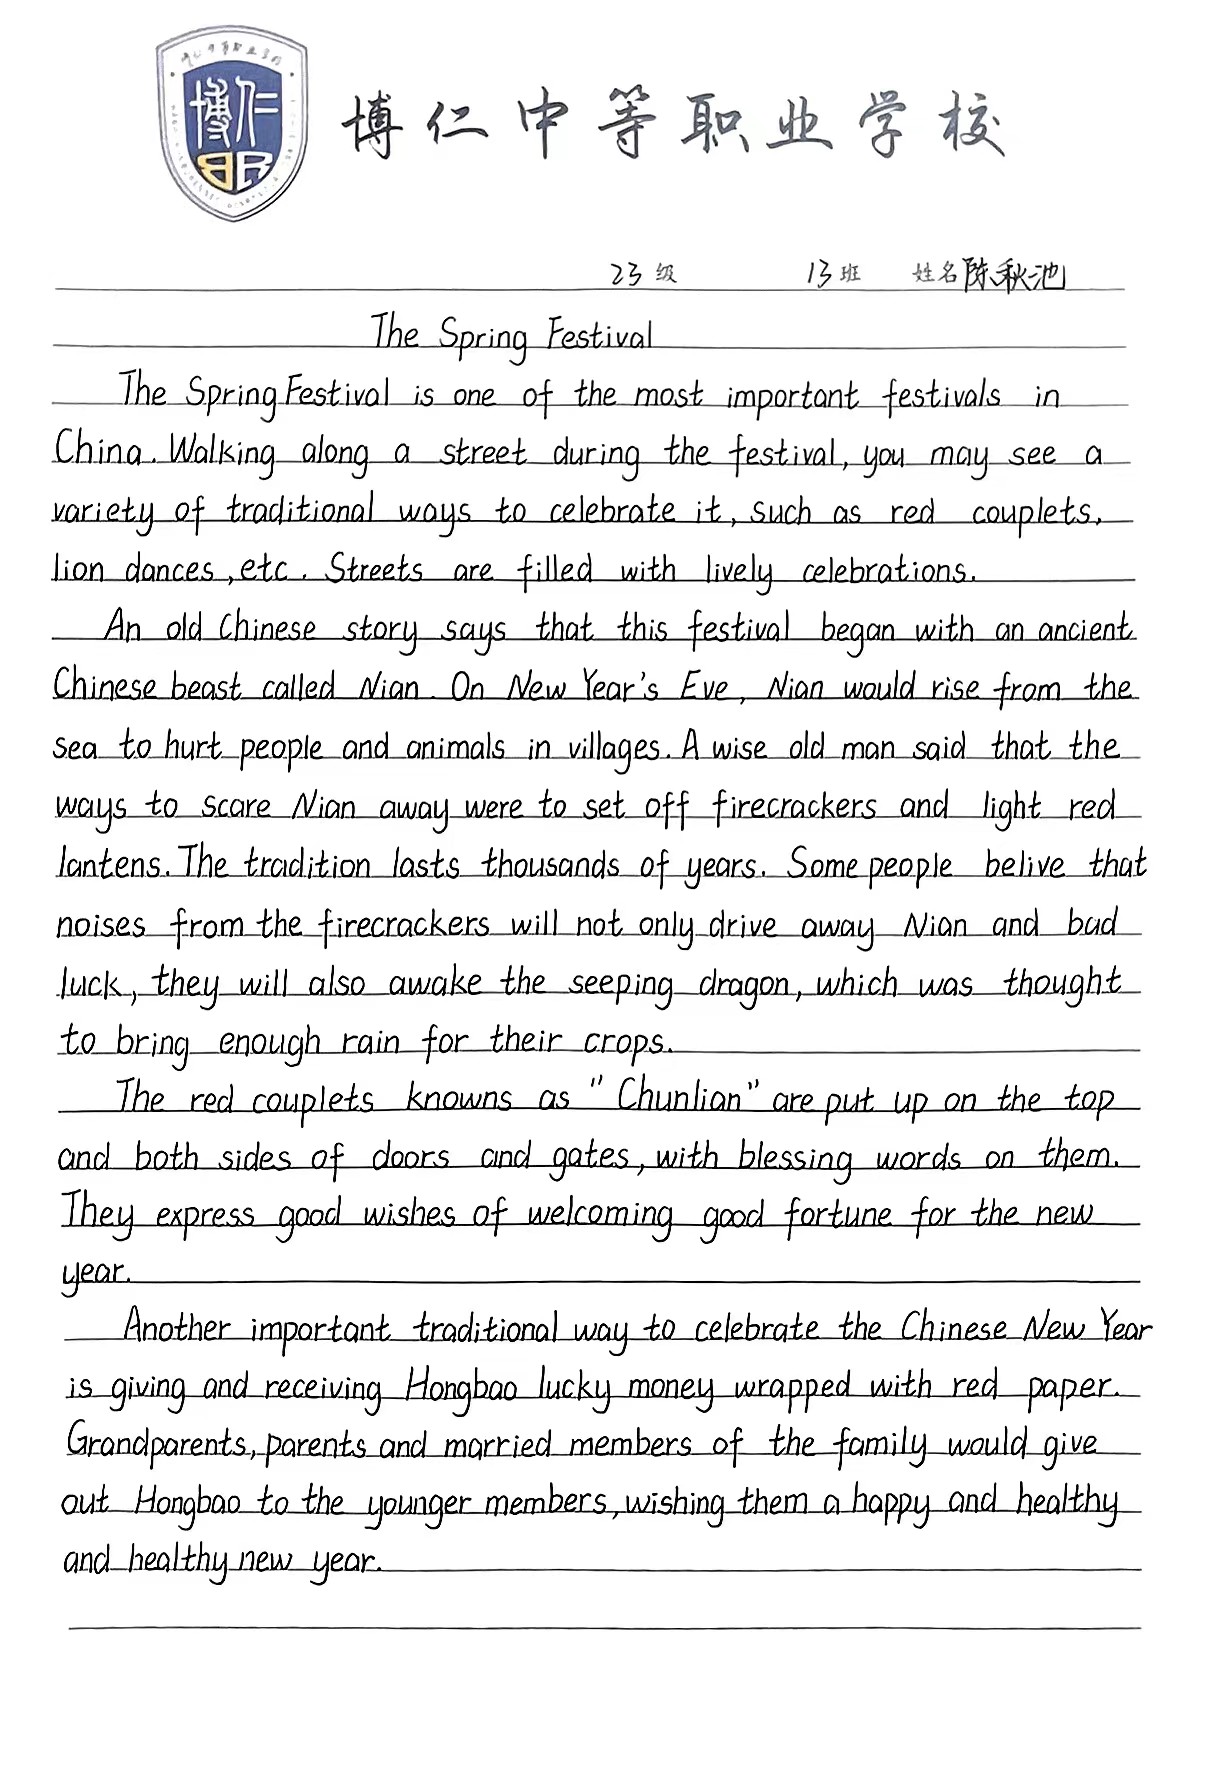 博仁
BR
博仁中等职业学校
23级 13班 姓名陈秋池
The Spring Festival
The Spring Festival is one of the most important festivals in
China. Walking along a street during the festival, you may see a
variety of traditional ways to celebrate it, such as red couplets,
lion dances, etc. Streets are filled with lively celebrations.
An old Chinese story says that this festival began with an ancient
Chinese beast called Nian. On New Year's Eve, Nian would rise from the
sea to hurt people and animals in villages. A wise old man said that the
ways to scare Nian away were to set off firecrackers and light red
lantens. The tradition lasts thousands of years. Some people belive that
noises from the firecrackers will not only drive away Nian and bad
luck, they will also awake the seeping dragon, which was thought
to bring enough rain for their crops.
The red couplets knowns as "Chunlian" are put up on the top
and both sides of doors and gates, with blessing words on them.
They express good wishes of welcoming good fortune for the new
year.
Another important traditional way to celebrate the Chinese New Year
is giving and receiving Hongbao lucky money wrapped with red paper.
Grandparents, parents and married members of the family would give
out Hongbao to the younger members, wishing them a happy and healthy
and healthy new year.